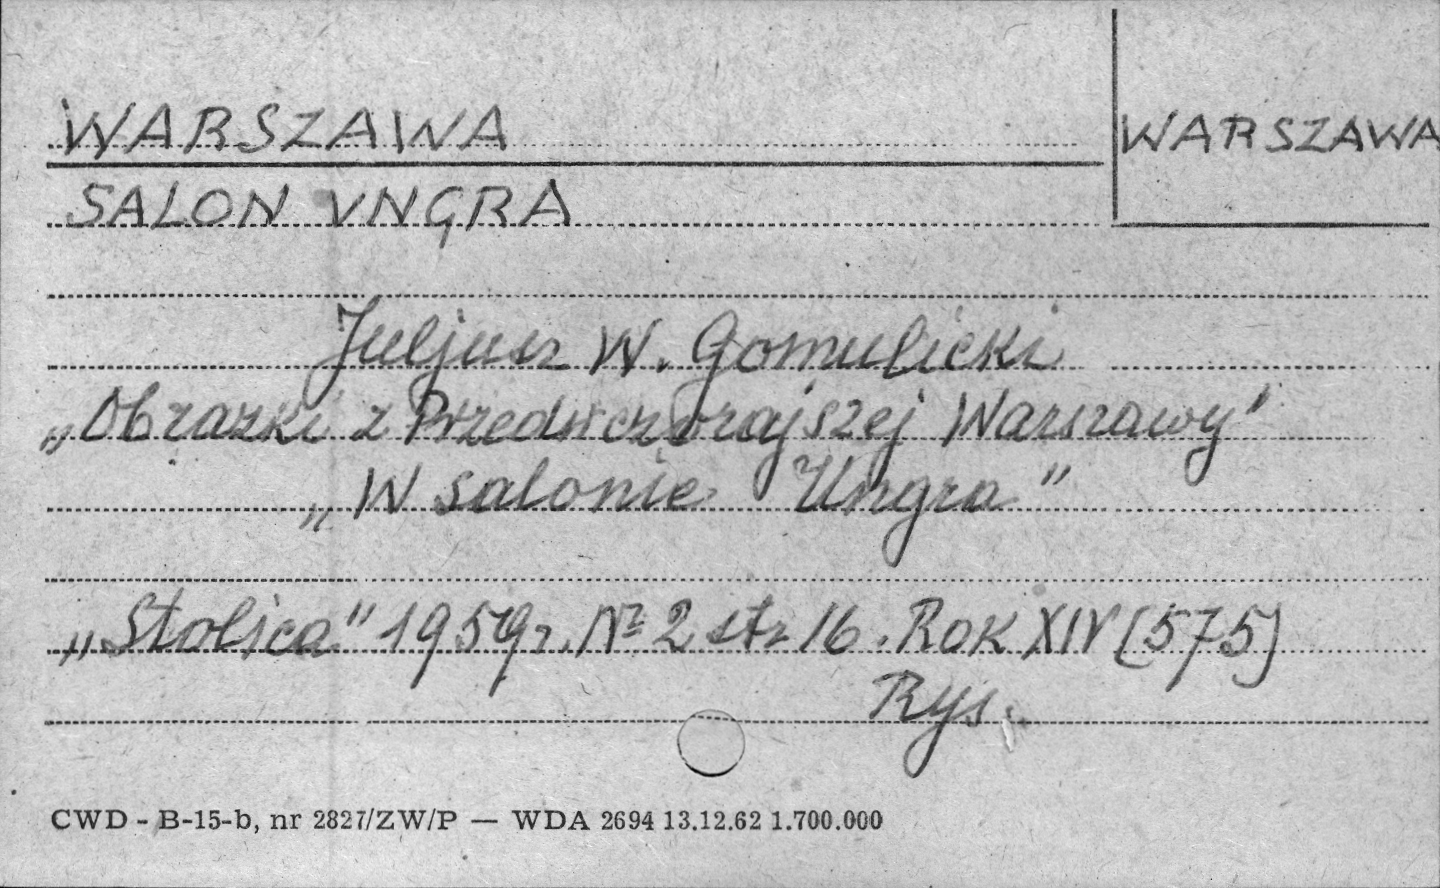 WARSZAWA
WARSZAWA
SALON UNGRA
Juljusz W. Gomulicki
„Obrazki z Przedwczorajszej Warszawy”
„W salonie Ungra”
„Stolica” 1959 r. № 2 str 16. Rok XIV (575)
Rys.
CWD - B-15-b, nr 2827/ZW/P — WDA 2694 13.12.62 1.700.000